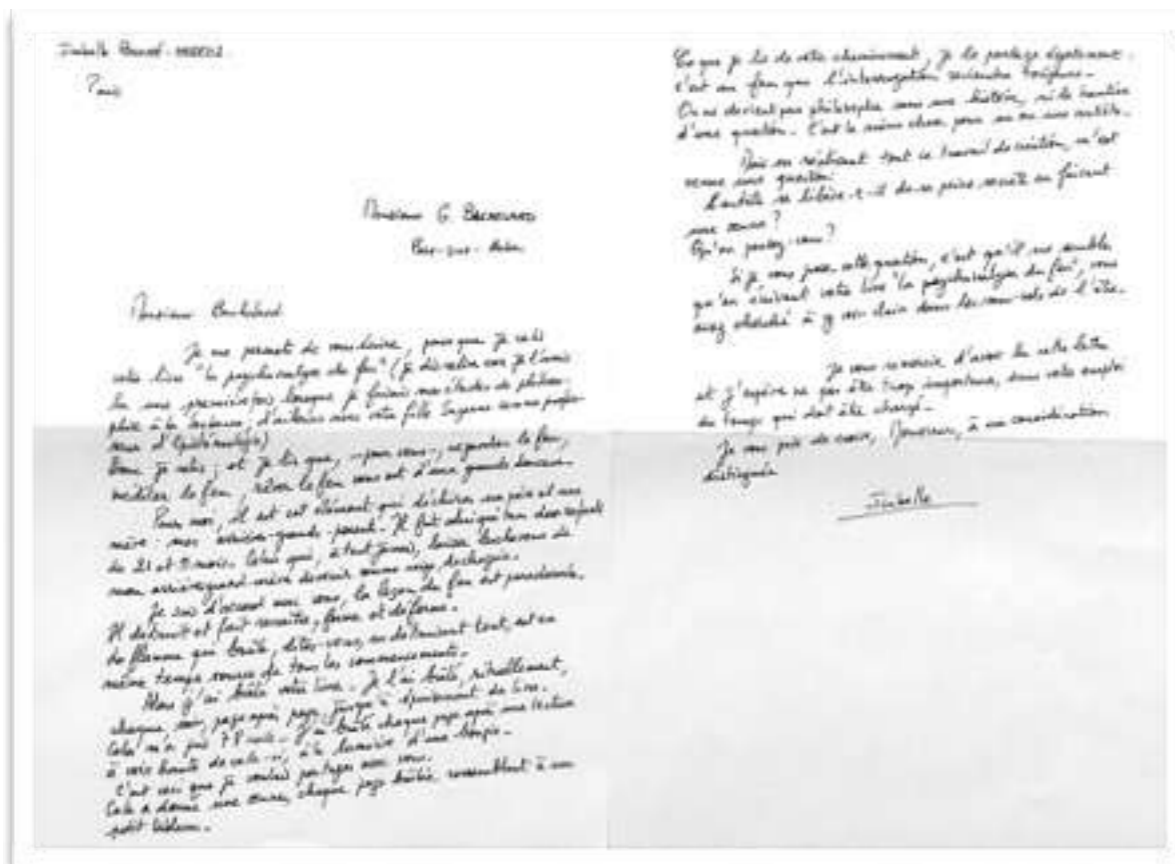 Isabelle
Paris
Monsieur G. BACHELARD
Bar-sur-Aube
Monsieur Bachelard
Je me permets de vous écrire, parce que je relis
votre livre "la psychanalyse du feu" (je dis relire car je l'avais
lu une première fois lorsque je faisais mes études de philoso-
phie à la Sorbonne, d'ailleurs avec votre fille Suzanne comme profes-
seur d'épistémologie)
Donc je relis ; et je lis que, - pour vous -, regarder le feu,
méditer le feu, rêver le feu vous est d'une grande douceur.
Pour moi, il est cet élément qui déchira un père et une
mère : mes arrière-grands-parents. Il fut celui qui tua des enfants
de 21 et mois. Celui qui, à tout jamais, laissa les cheveux de
mon arrière-grand-mère devenir comme neige
Je suis d'accord avec vous, la leçon du feu est paradoxale.
Il détruit et fait renaître, forme et déforme.
La flamme qui brûle, dites-vous, en détruisant tout, est en
même temps source de tous les commencements.
Alors j'ai brûlé votre livre. Je l'ai brûlé, rituellement,
chaque soir, page après page, jusqu'à épuisement du livre.
Cela m'a pris 78 J'ai brûlé chaque page après une lecture
à voix haute de celle-ci, à la lumière d'une bougie.
C'est ceci que je voulais partager avec vous.
Cela a donné une œuvre, chaque page brûlée ressemblant à un
petit tableau.
Ce que je lis de votre cheminement, je le partage également.
C'est au feu que l'interrogation reviendra toujours.
On ne devient pas philosophe sans une histoire, ni la
d'une question. C'est la même chose pour un ou une artiste.
Mais en réalisant tout ce travail de création, m'est
venue une question:
L'artiste se libère-t-il de sa peine secrète en faisant
une œuvre ?
Qu'en pensez-vous ?
Si je vous pose cette question, c'est qu'il me semble
qu'en écrivant votre livre "la psychanalyse du feu", vous
avez cherché à y voir clair dans les de l'être.
Je vous remercie d'avoir lu cette lettre
et j'espère ne pas être trop importune, dans votre emploi
du temps qui doit être chargé.
Je vous prie de croire, Monsieur, à ma considération
distinguée
Isabelle